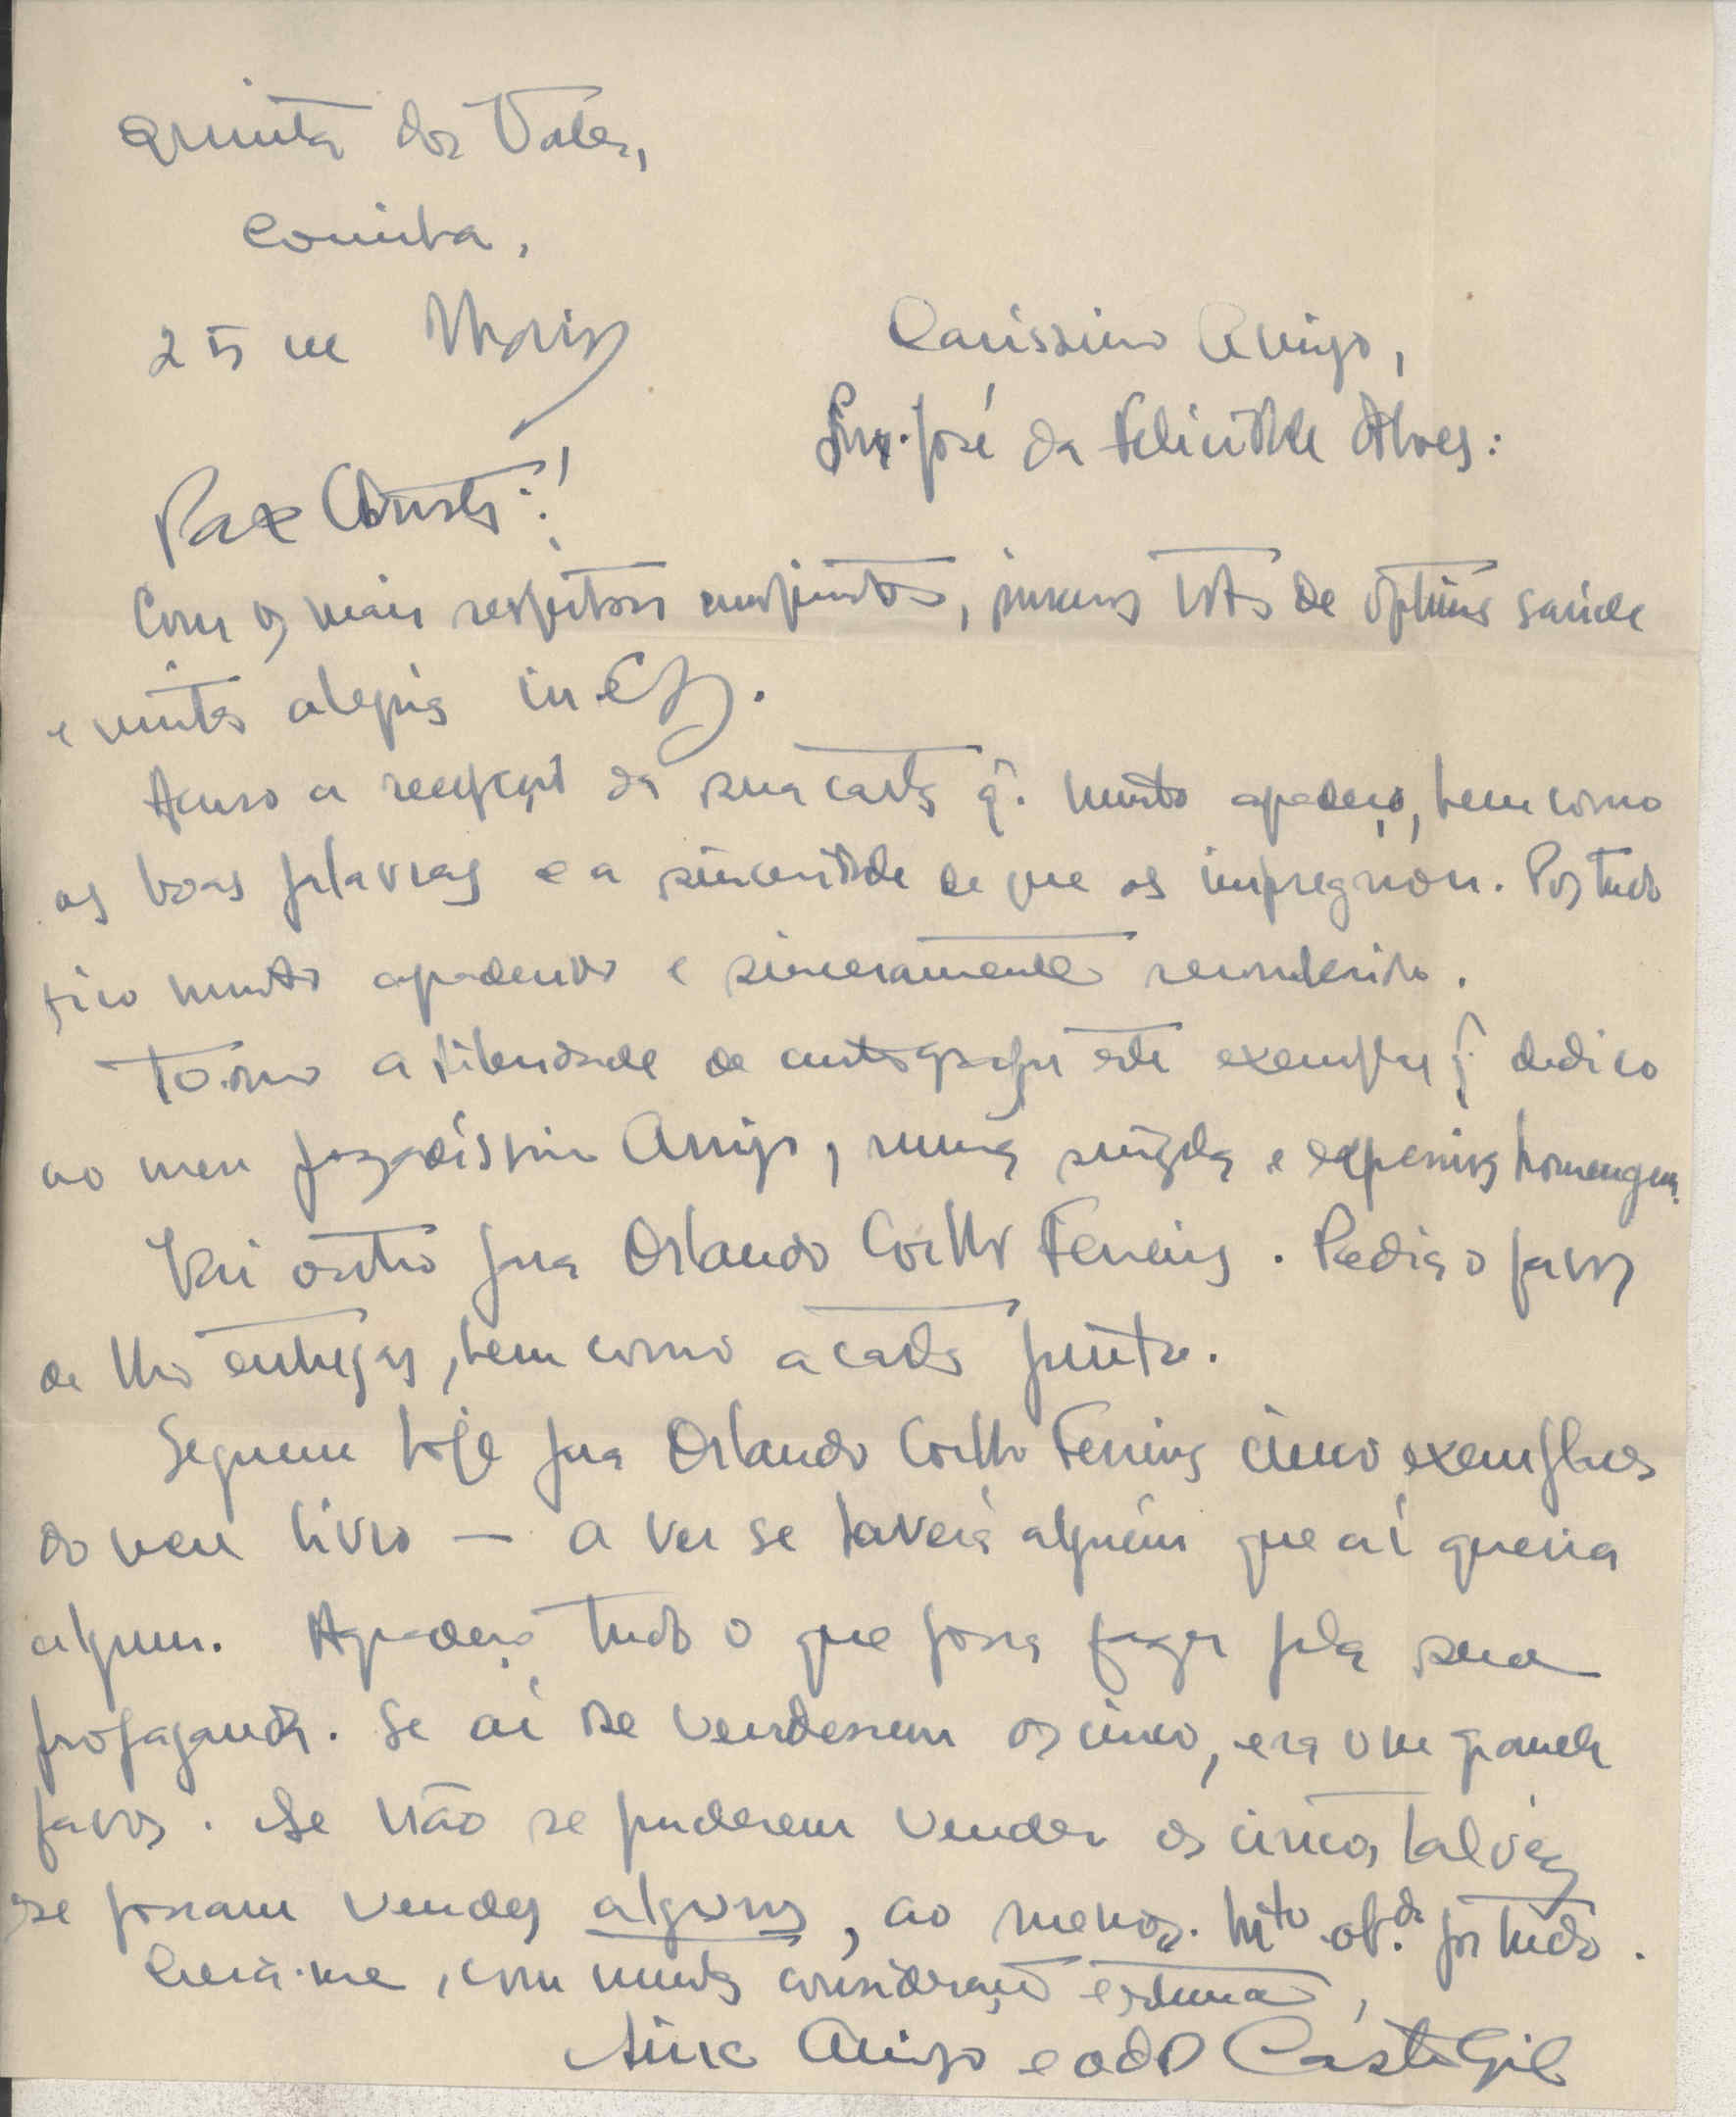 Quinta dos Vales,
Coimbra,
25 de Março
Caríssimo Amigo,
Snr. José da Felicidade Alves:
Pax Christi!
Com os mais respeitosos cumprimentos, votos de óptima saúde
e muita alegria in
Acuso a recepção da sua carta q. muito agradeço, bem como
as boas palavras e a sinceridade de que as impregnou. Por tudo
fico muito agradecido e sinceramente reconhecido.
Tomo a liberdade de autografar este exemplar q. dedico
ao meu prezadíssimo Amigo, numa singela e expressiva homenagem.
Vai outro para Orlando Coelho Ferreira. Pedia o favor
de lho entregar, bem como a carta junta.
Seguem hoje para Orlando Coelho Ferreira cinco exemplares
do meu livro — a ver se haverá alguém que aí queira
algum. Agradeço tudo o que possa fazer pela sua
propaganda. Se aí se vendessem os cinco, era um grande
favor. Se não se puderem vender os cinco, talvez
se possam vender alguns, ao menos. Mto obg.do por tudo.
Creia-me, com muita consideração e estima,
Amigo e